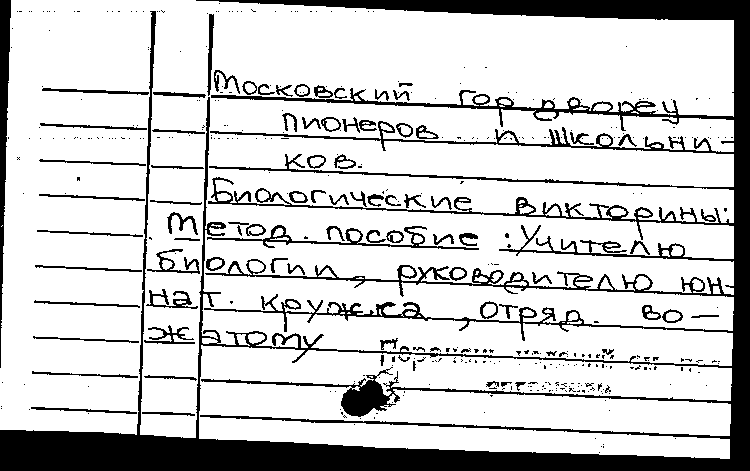 Московский гор дворец
пионеров и школьни-
ков.
Биологические викторины:
Метод. пособие : Учителю
биологии, руководителю юн-
нат. кружка, отряд. во-
жатому
Перечень изданий см. под